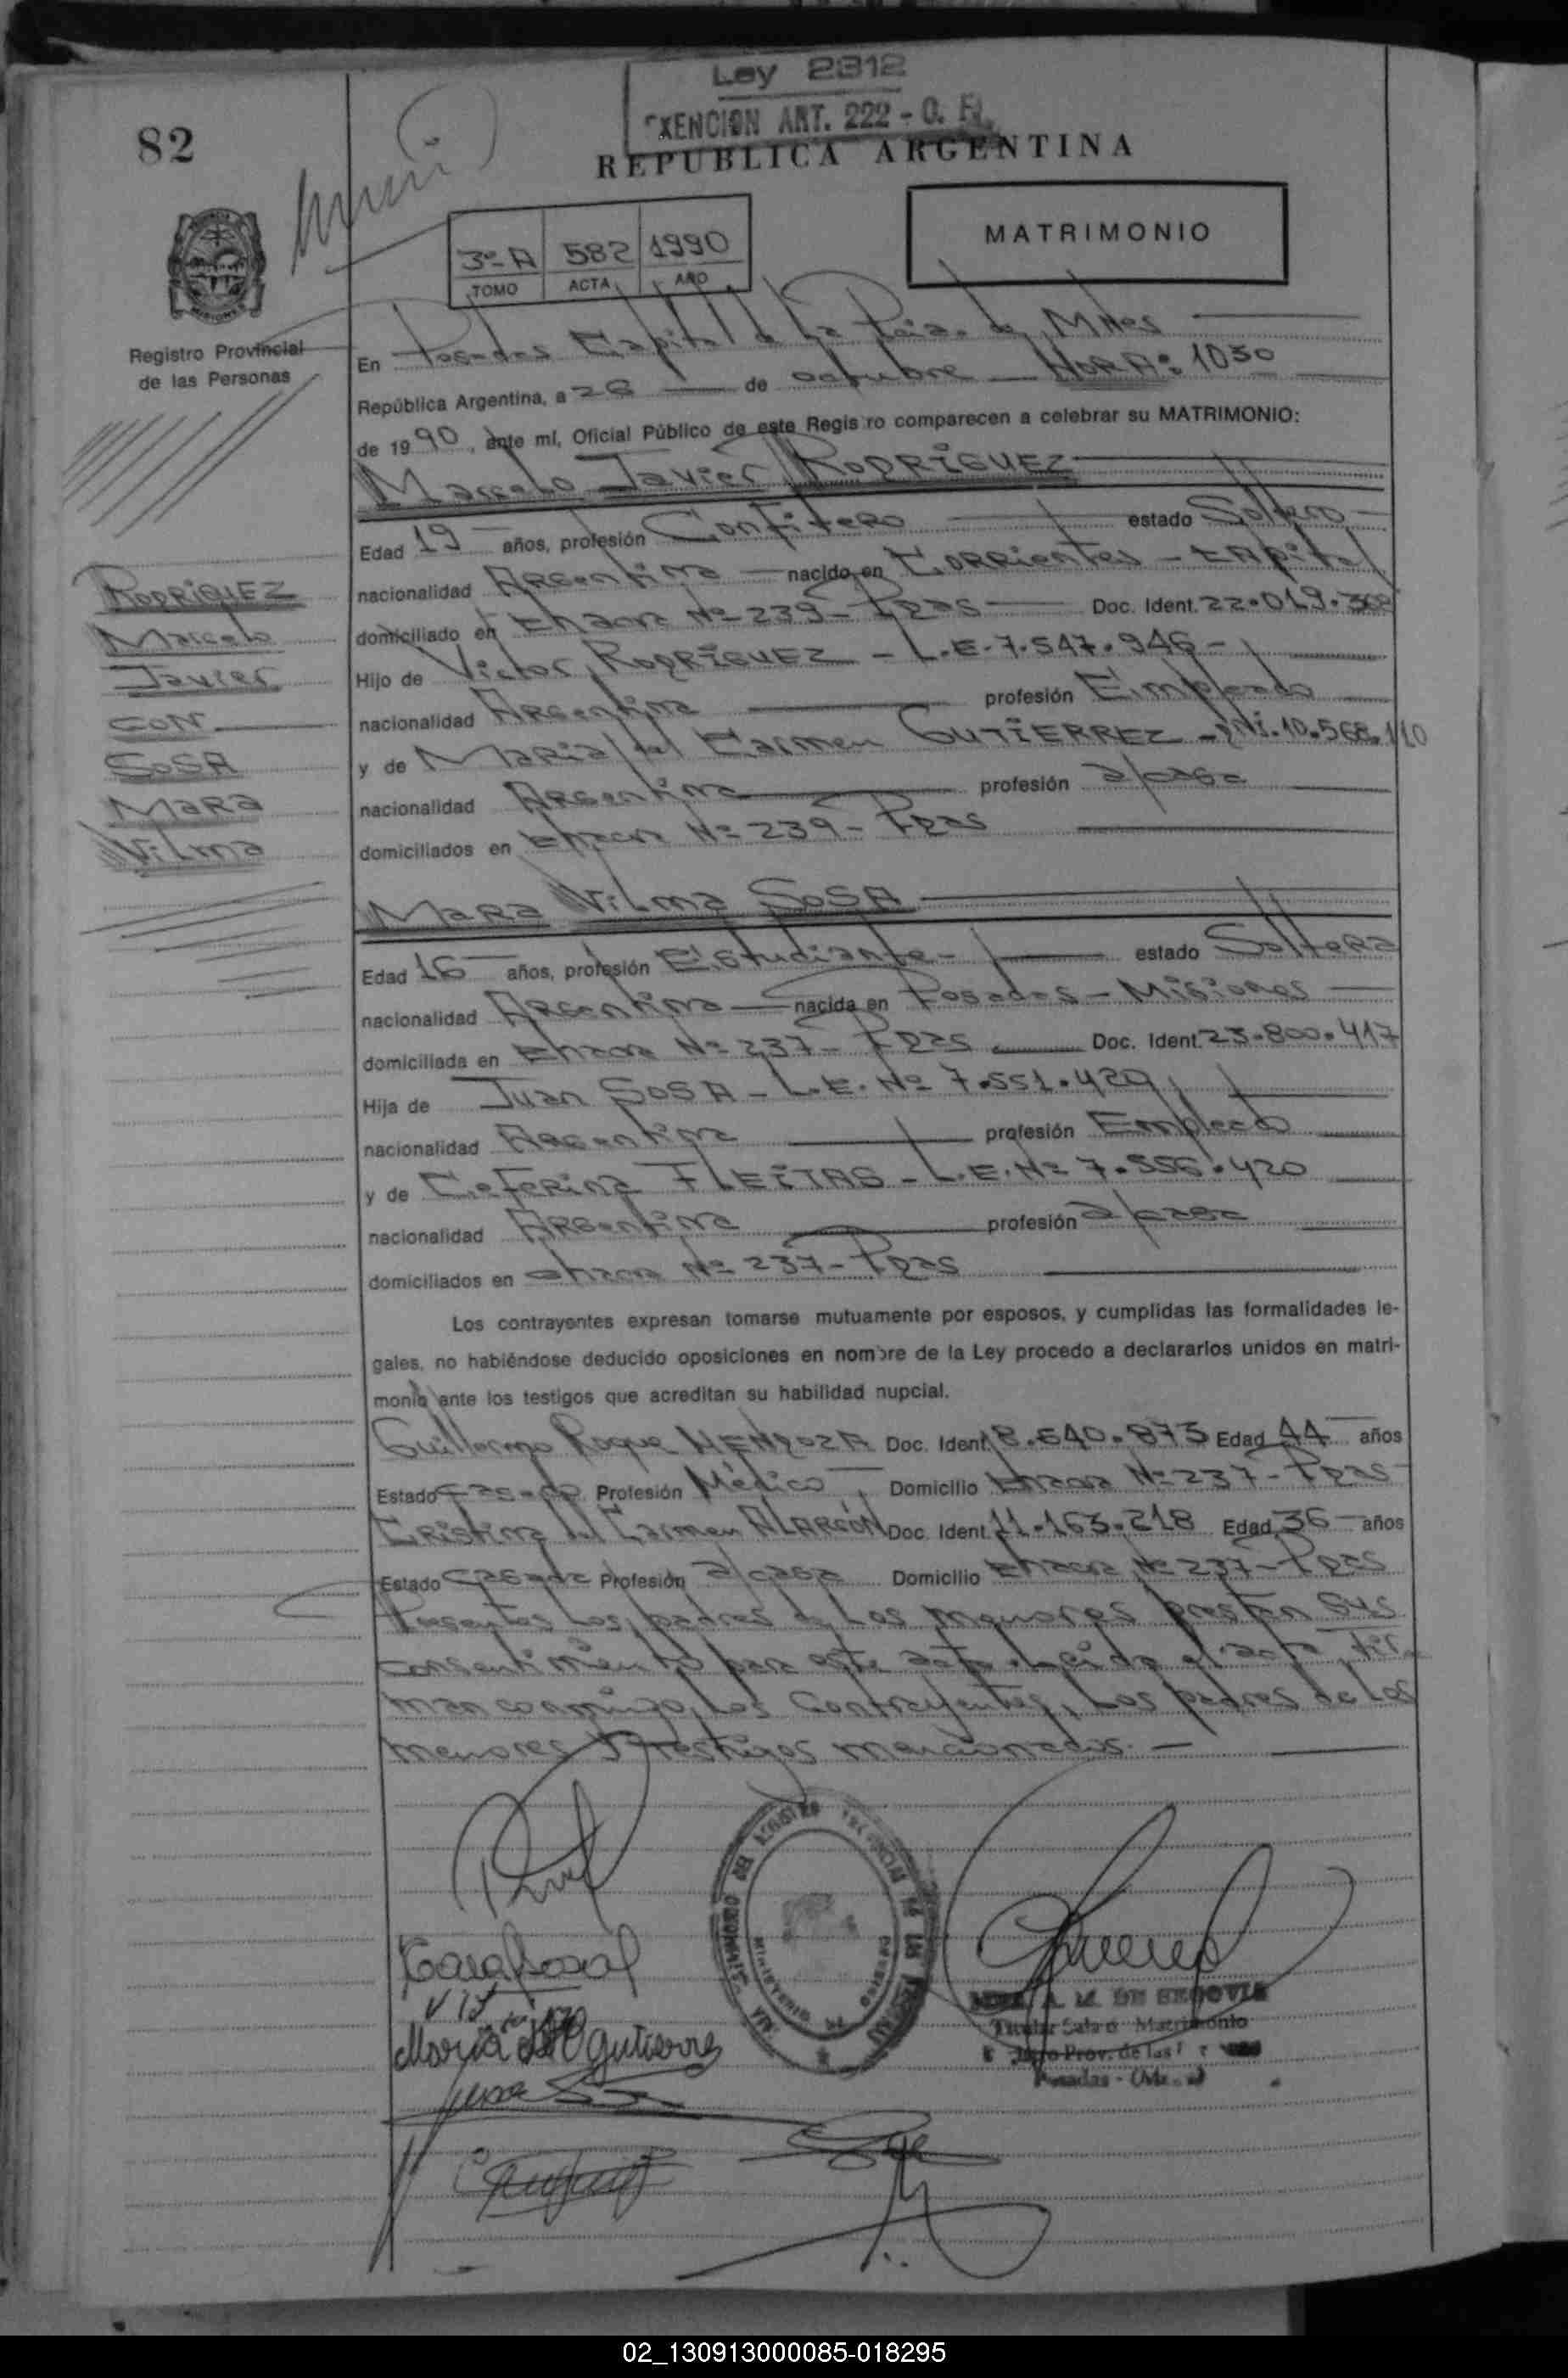 Ley 2312
EXENCION ART. 222 - O. F.
82
REPUBLICA ARGENTINA
MATRIMONIO
3º-A 582 1990
TOMO ACTA AÑO
Registro Provincial
de las Personas
En Posadas Capital de la Pcia. de Mnes
República Argentina, a 26 de octubre HORA: 1030
de 1990, ante mí, Oficial Público de este Regis ro comparecen a celebrar su MATRIMONIO:
Marcelo Javier RODRIGUEZ
Edad 19 años, profesión Confitero estado Soltero
nacionalidad Argentina nacido en Corrientes - Capital
domiciliado en Chacra Nº 239 - Pdas Doc. Ident. 22.019.368
Hijo de Victor RODRIGUEZ - L.E. 7.547.946 -
nacionalidad Argentina profesión Empleado
y de Maria del Carmen GUTIERREZ - DNI. 10.568.110
nacionalidad Argentina profesión a/casa
domiciliados en Chacra Nº 239 - Pdas
RODRIGUEZ
Marcelo
Javier
CON
SOSA
MARA
Vilma
MARA Vilma SOSA
Edad 16 años, profesión Estudiante - estado Soltera
nacionalidad Argentina nacida en Posadas - Misiones
domiciliada en Chacra Nº 237 - Pdas Doc. Ident. 23.800.417
Hija de Juan SOSA - L.E. Nº 7.551.429
nacionalidad Argentina profesión Empleado
y de Ceferina FLEITAS - L.E. Nº 7.556.420
nacionalidad Argentina profesión a/casa
domiciliados en chacra Nº 237 - Pdas
Los contrayentes expresan tomarse mutuamente por esposos, y cumplidas las formalidades le-
gales, no habiéndose deducido oposiciones en nombre de la Ley procedo a declararlos unidos en matri-
monio ante los testigos que acreditan su habilidad nupcial.
Guillermo Roque MENDOZA Doc. Ident. 8.640.873 Edad 44 años
Estado casado Profesión Médico Domicilio Chacra Nº 237 - Pdas
Cristina del Carmen ALARCÓN Doc. Ident. 11.163.218 Edad 36 años
Estado casada Profesión a/casa Domicilio Chacra Nº 237 - Pdas
Presentes los padres de los menores prestan sus
consentimiento para este acto. Leida el acta, fir-
man conmigo, los contrayentes, los padres de los
menores y testigos mencionados. -
Maria del C Gutierrez
A. M. DE SEGOVIA
Titular Sala Matrimonio
Prov. de las
Posadas - (Mnes)
02_130913000085-018295